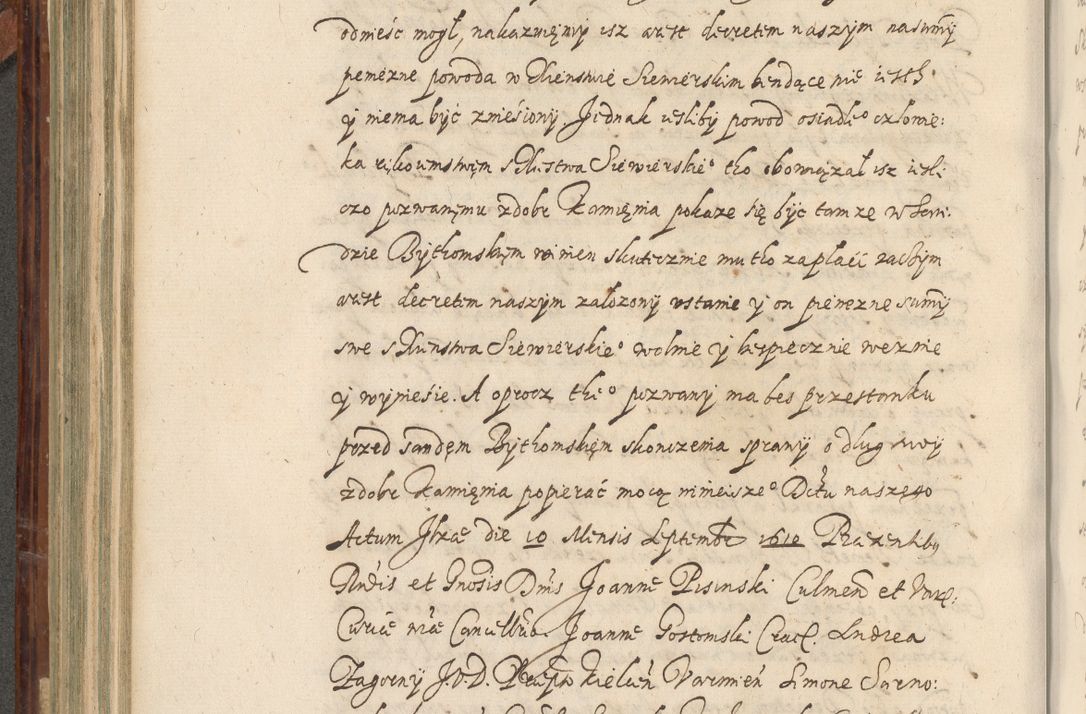 odnieść mogł, nakazuięmy isz arest decretem naszym na summy
pienięzne powoda w Xienstwie Siewierskim bendące nie iesth
y niema być zniesiony. Jednak iesliby powod osiadłe° człowie:
ka rękoiemstwem s Xiestwa Siewierskie° tho obowiązał isz iesli
czo pozwanymu zdobr Kamięnia pokaze się być tam ze w Sen:
dzie Bythomskym winien skutecznie mu tho zapłacić zaczym
arest decretem naszym załozony ustanie y on pienięzne summy
swe s Xienstwa Siewierskie° wolnie y bespiecznie wezmie
y wyniesie. A oprocz the° pozwany ma bes przestanku
przed Sandem Bythomskiem skonczenia sprawy o dług swoy
zdobr Kamięnia popierać mocą ninieisze° Dctu naszego
Actum Ilzae die 10 Mensis Septembr 1610 Praesentibus
Rndis et Gnosis Dnis Joanne Pisinski Culmen et Vars:
Curiae nrae Cancellrio Joanne Gostomski Crac. Andrea
Zagorny J.V.D. Praepto Kielcen Varmien Simone Sarno: